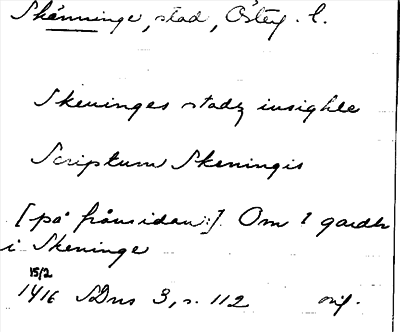 Skänninge, stad, Österg. l.
Skeninges stadz insighle
Scriptum Skeningis
[på frånsidan:] Om 1 gardh
i Skeninge
15/2
1416 SDns 3, s. 112 orig.